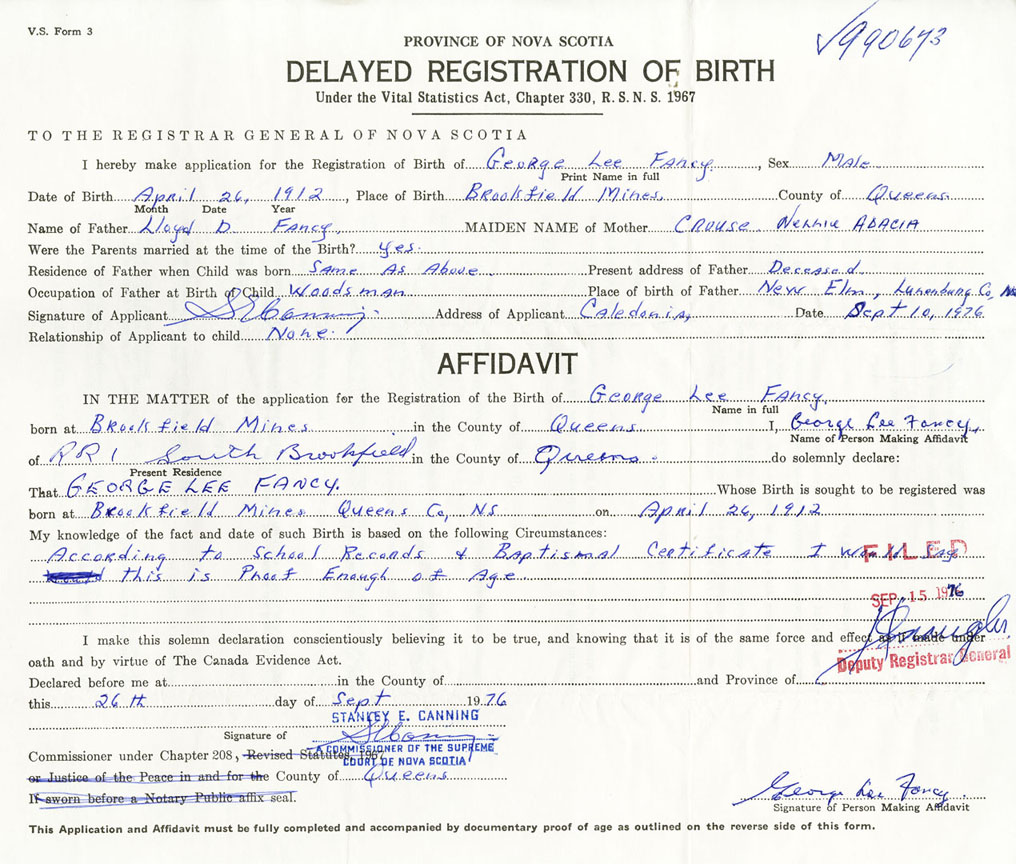 V.S. Form 3
√990673
PROVINCE OF NOVA SCOTIA
DELAYED REGISTRATION OF BIRTH
Under the Vital Statistics Act, Chapter 330, R.S.N.S. 1967
TO THE REGISTRAR GENERAL OF NOVA SCOTIA
I hereby make application for the Registration of Birth of George Lee Fancy, Sex Male
Print Name in full
Date of Birth April 26, 1912, Place of Birth Brookfield Mines, County of Queens
Month Date Year
Name of Father Lloyd D. Fancy. MAIDEN NAME of Mother CROUSE Nennie ADACIA
Were the Parents married at the time of the Birth? yes.
Residence of Father when Child was born Same As Above. Present address of Father Deceased
Occupation of Father at Birth of Child Woodsman Place of birth of Father New Elm, Lunenburg Co, NS
Signature of Applicant SECanning. Address of Applicant Caledonia, Date Sept 10, 1976
Relationship of Applicant to child None.
AFFIDAVIT
IN THE MATTER of the application for the Registration of the Birth of George Lee Fancy.
Name in full
born at Brookfield Mines in the County of Queens I, George Lee Fancy,
Name of Person Making Affidavit
of RR1 South Brookfield in the County of Queens. do solemnly declare:
Present Residence
That GEORGE LEE FANCY. Whose Birth is sought to be registered was
born at Brookfield Mines Queens Co, NS on April 26, 1912
My knowledge of the fact and date of such Birth is based on the following Circumstances:
According to School Records & Baptismal Certificate I would Say
this is Proof Enough of Age.
FILED
SEP. 15 1976
I make this solemn declaration conscientiously believing it to be true, and knowing that it is of the same force and effect as if made under
oath and by virtue of The Canada Evidence Act.
Deputy Registrar General
Declared before me at in the County of and Province of
this 26th day of Sept 1976
STANLEY E. CANNING
Signature of SECanning
A COMMISSIONER OF THE SUPREME
COURT OF NOVA SCOTIA
Commissioner under Chapter 208, Revised Statutes, 1967
or Justice of the Peace in and for the County of Queens
If sworn before a Notary Public affix seal.
George Lee Fancy.
Signature of Person Making Affidavit
This Application and Affidavit must be fully completed and accompanied by documentary proof of age as outlined on the reverse side of this form.